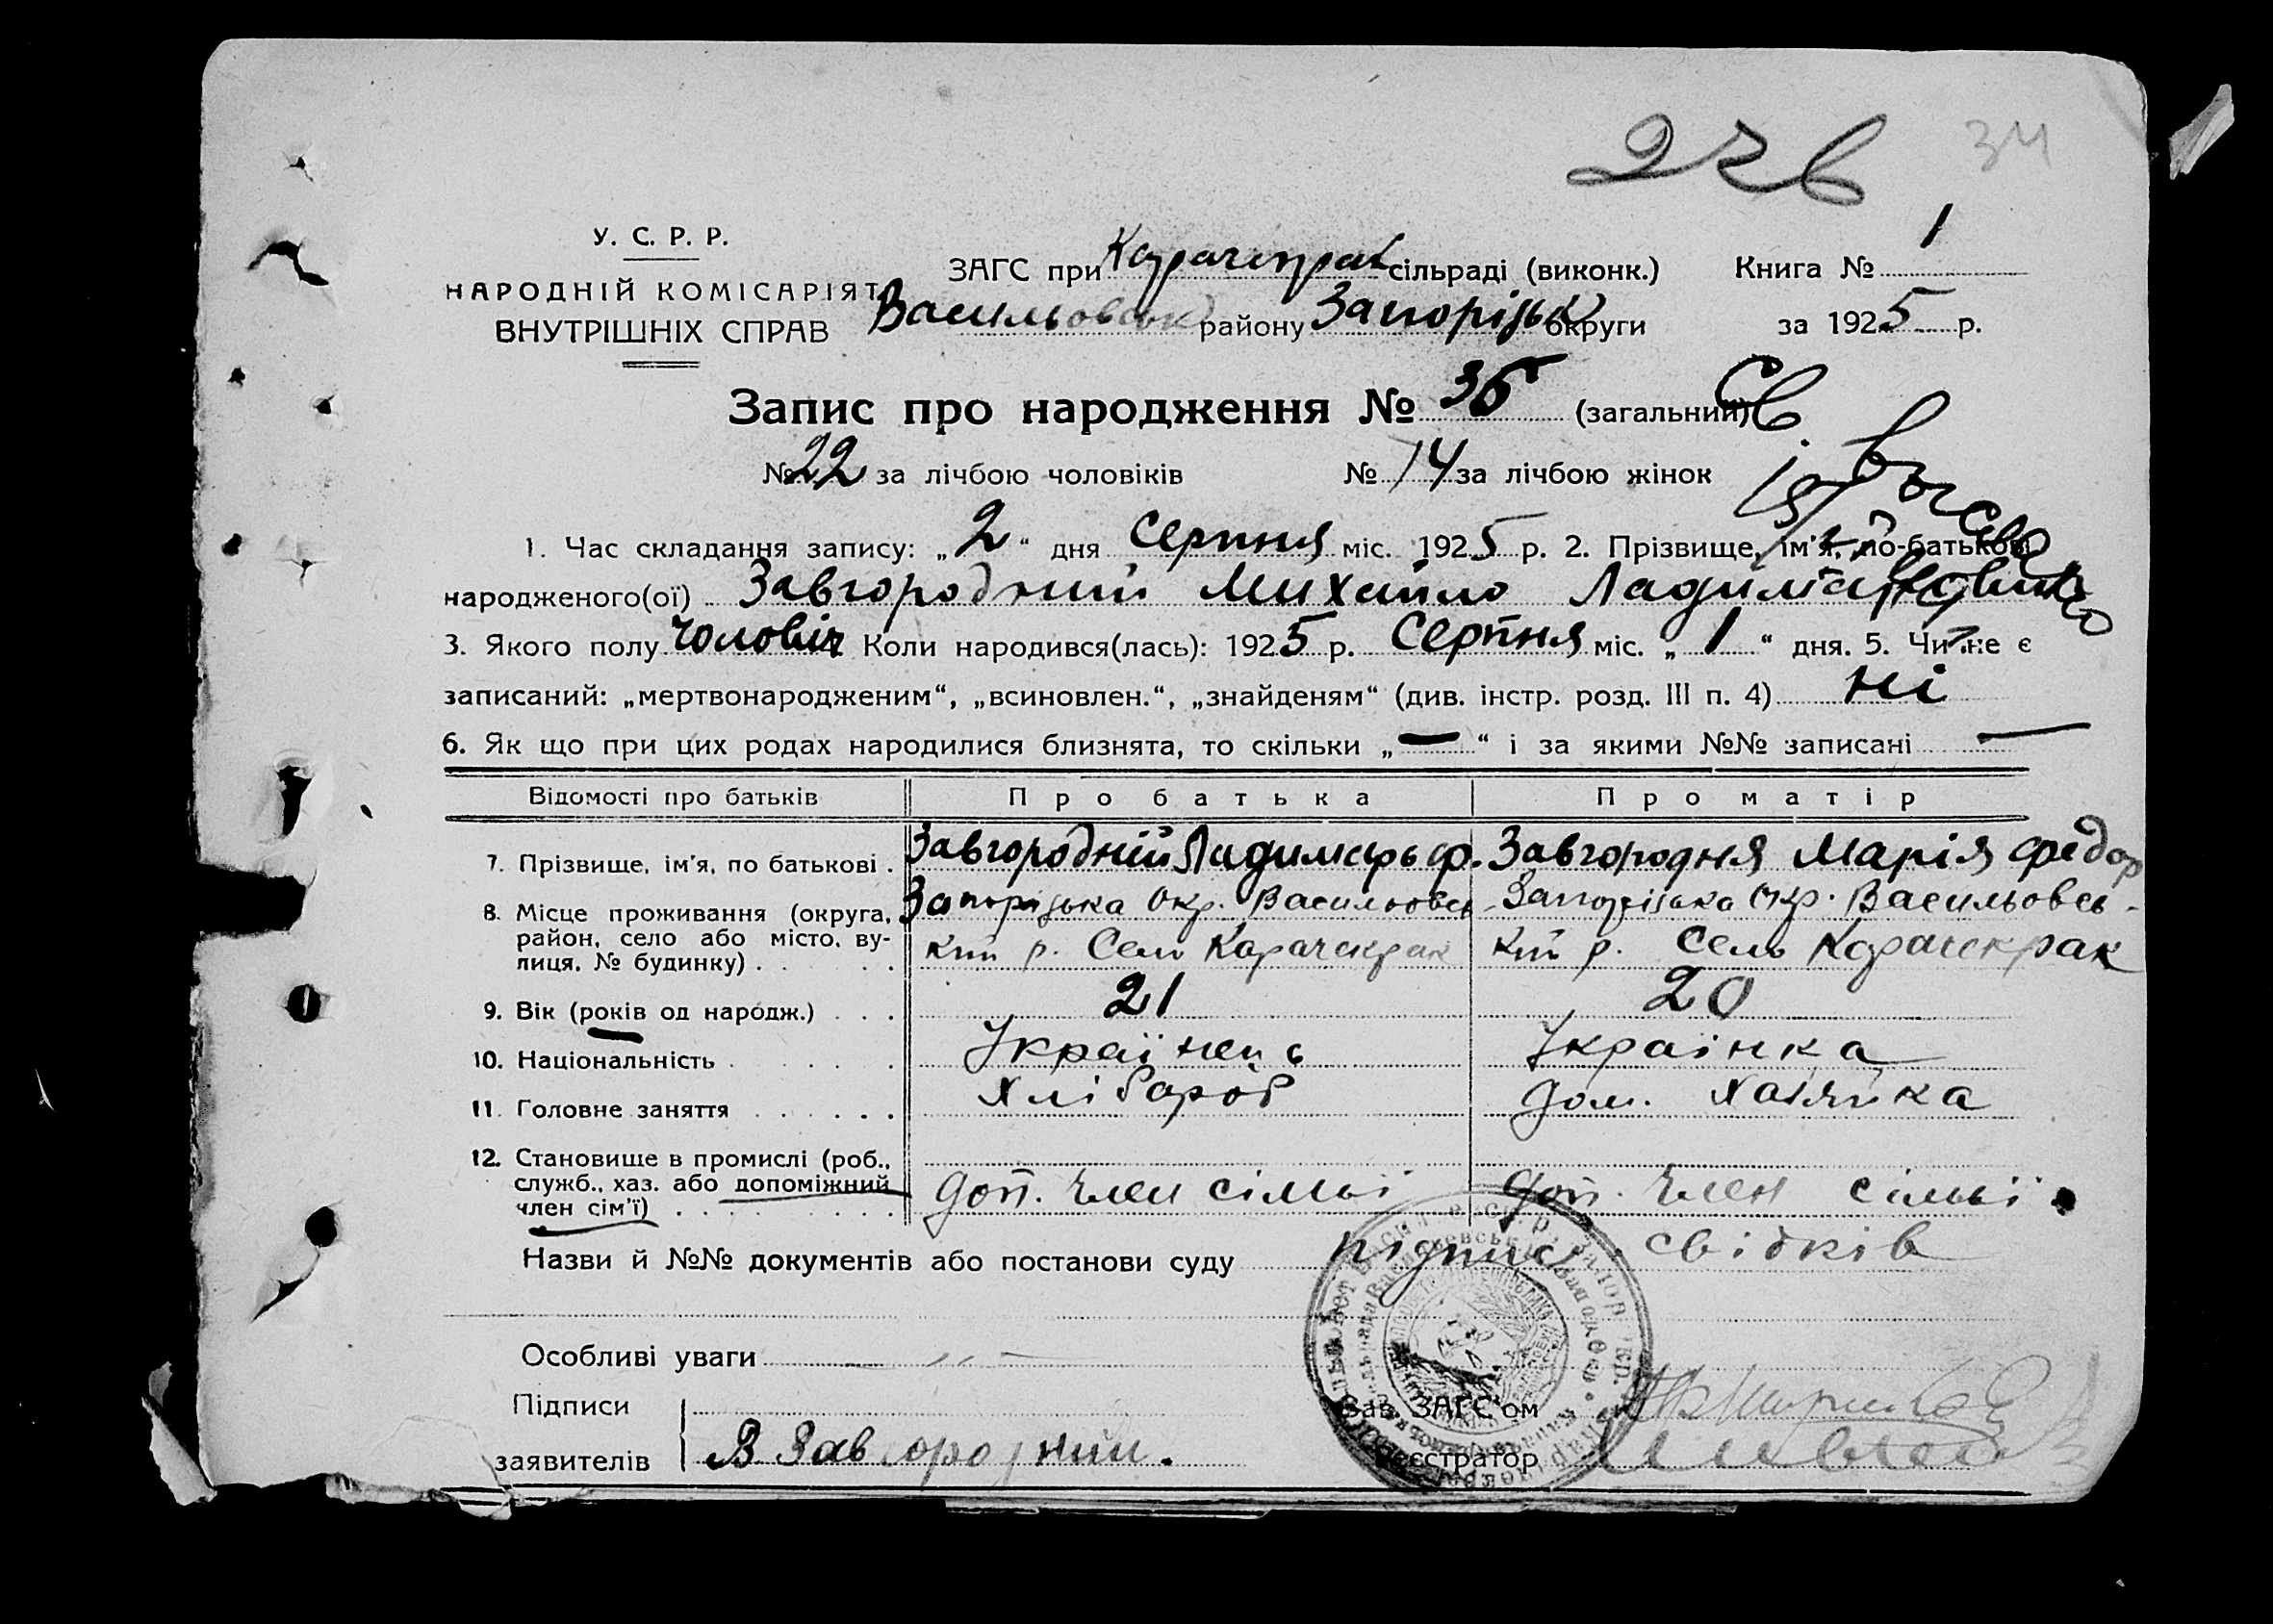 34
У. С. Р. Р.
НАРОДНІЙ КОМІСАРІЯТ
ВНУТРІШНІХ СПРАВ
ЗАГС при Карачекрак сільраді (виконк.) Книга № 1
Васильовськ району Запорізьк округи за 1925 р.
Запис про народження № 36 (загальний)
№ 22 за лічбою чоловіків № 14 за лічбою жінок
Св.
1. Час складання запису: „2“ дня Серпня міс. 1925 р. 2. Прізвище, ім'я, по-батькові
народженого(ої) Завгородний Михайло Ладимарович
3. Якого полу чоловіч Коли народився(лась): 1925 р. Серпня міс. „1“ дня. 5. Чи не є
записаний: „мертвонародженим“, „всиновлен.“, „знайденям“ (див. інстр. розд. III п. 4) ні
6. Як що при цих родах народилися близнята, то скільки „—“ і за якими №№ записані —
Відомості про батьків Про батька Про матір
7. Прізвище, ім'я, по батькові . Завгородній Ладимарь ф. Завгородня Марія Федор
8. Місце проживання (округа, Запорізька Окр. Васильовсь Запорізька Окр. Васильовсь-
район, село або місто, ву- кий р. Село Карачекрак кий р. Село Карачекрак
лиця, № будинку) . . .
9. Вік (років од народж.) . . . 21 20
10. Національність . . . . . Українець Українка
11. Головне заняття . . . . . . Хлібароб дом. Хазяйка
12. Становище в промислі (роб.,
служб., хаз. або допоміжний доп. Член сімьі доп. Член сімьї
член сім'ї) . . . . . . . . .
Назви й №№ документів або постанови суду підпис свідків
Особливі уваги — „ —
Підписи Зав. ЗАГС'ом
заявителів В Завгородний. Реєстратор